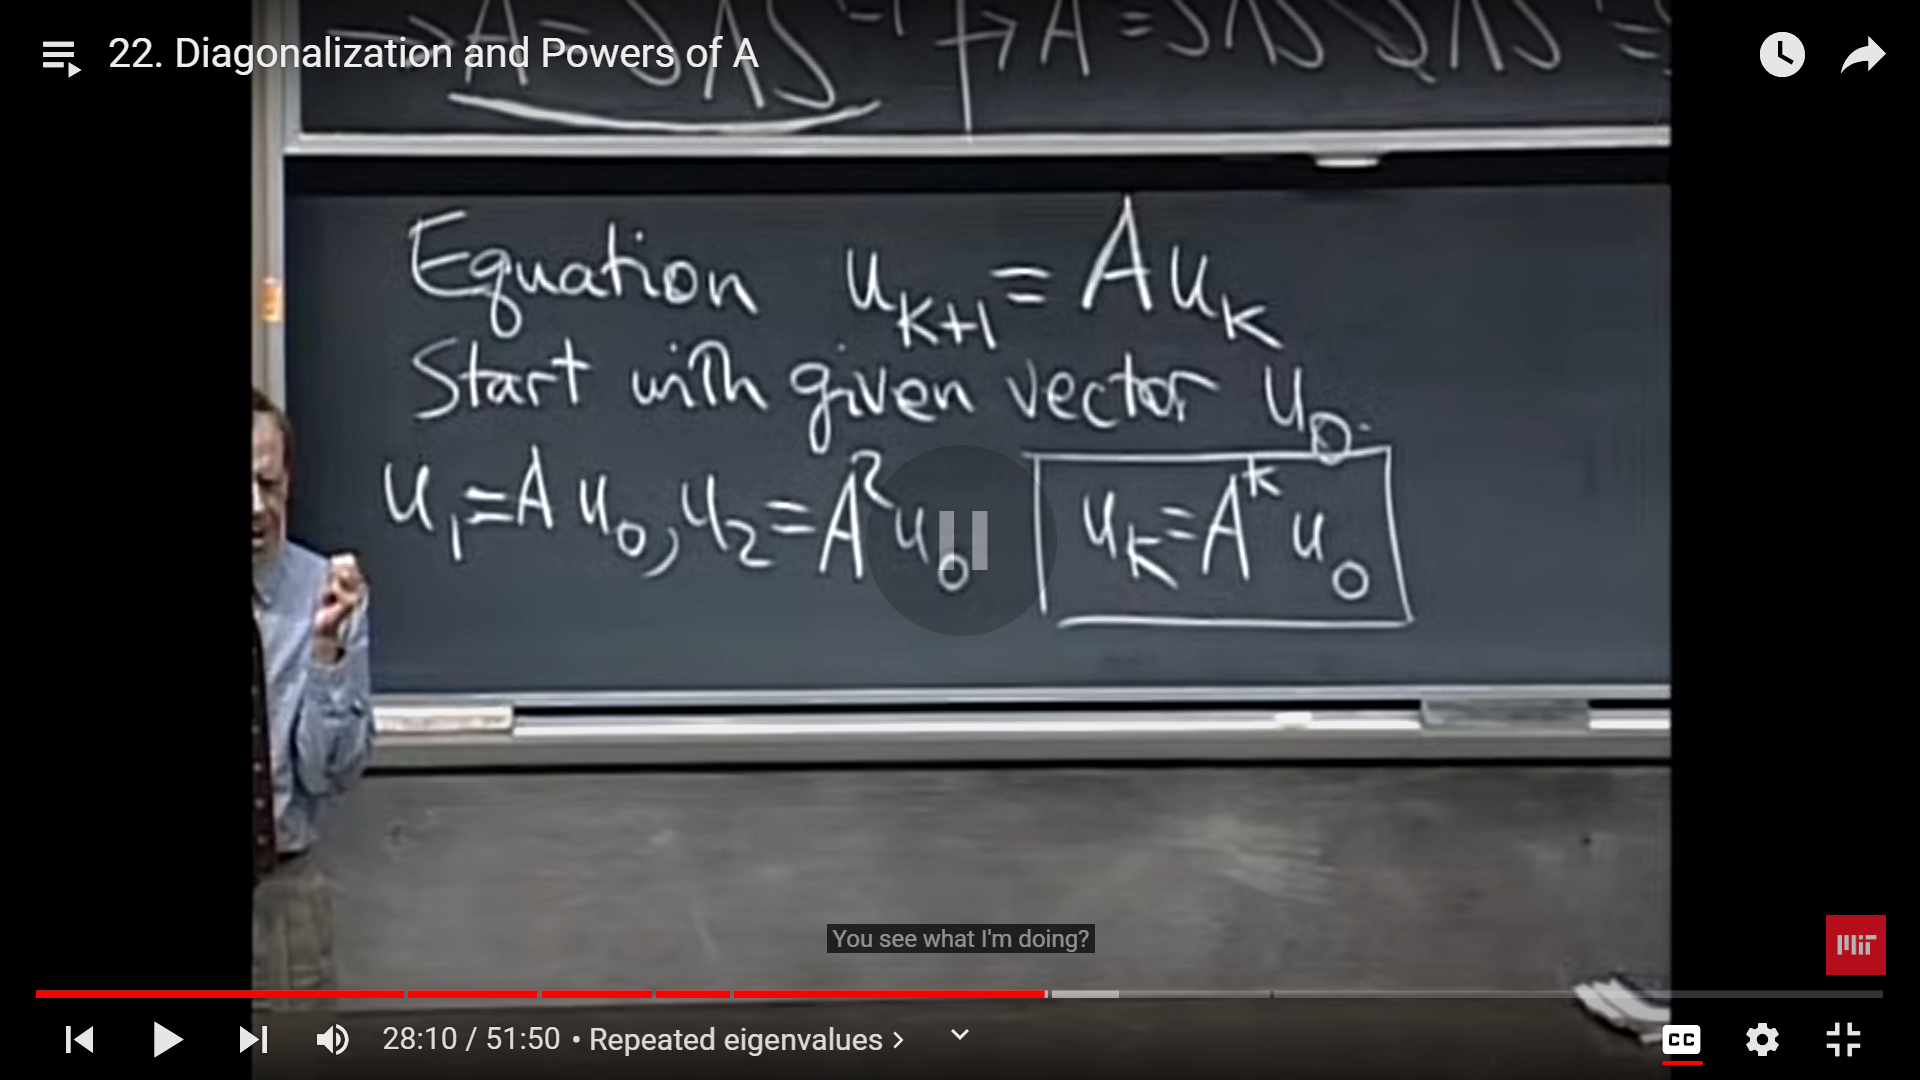 22. Diagonalization and Powers of A
→ A = SΛS⁻¹ → A = SΛS⁻¹SΛS⁻¹ =
Equation u_{k+1} = A u_k
Start with given vector u_0.
u_1 = A u_0, u_2 = A² u_0
u_k = A^k u_0
You see what I'm doing?
MIT
28:10 / 51:50 • Repeated eigenvalues >
CC